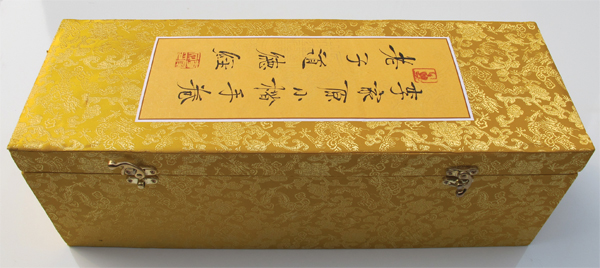 李家原小楷手卷
老子道德經